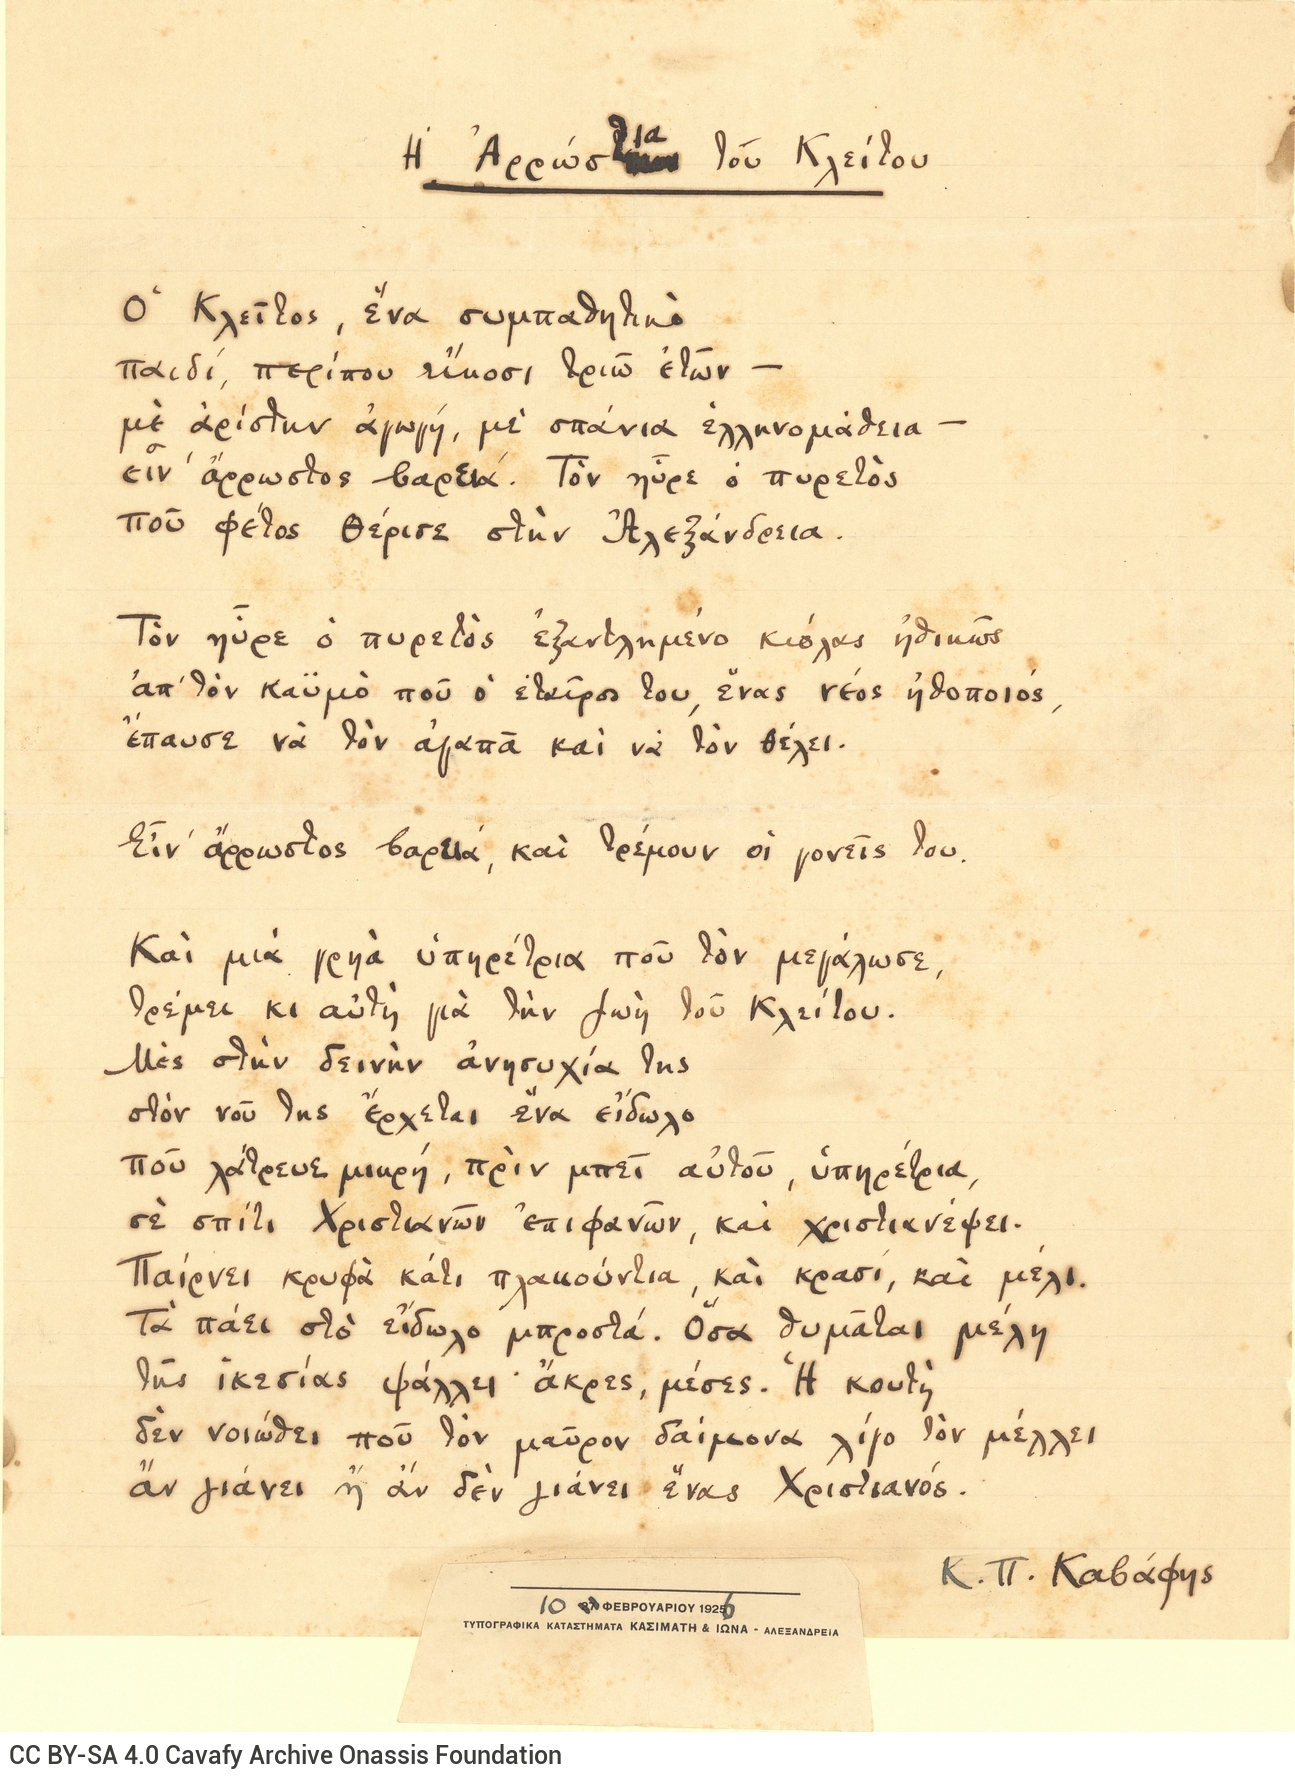 Ἡ Ἀρρώστια τοῦ Κλείτου
Ὁ Κλεῖτος, ἕνα συμπαθητικὸ
παιδί, περίπου εἴκοσι τριῶ ἐτῶν —
μὲ ἀρίστην ἀγωγή, μὲ σπάνια ἑλληνομάθεια —
εἶν' ἄρρωστος βαρειά. Τὸν ηὗρε ὁ πυρετὸς
ποῦ φέτος θέρισε στὴν Ἀλεξάνδρεια.
Τὸν ηὗρε ὁ πυρετὸς ἐξαντλημένο κιόλας ἠθικῶς
ἀπ' τὸν καϋμὸ ποῦ ὁ ἑταῖρος του, ἕνας νέος ἠθοποιός,
ἔπαυσε νὰ τὸν ἀγαπᾶ καὶ νὰ τὸν θέλει.
Εἶν' ἄρρωστος βαρειά, καὶ τρέμουν οἱ γονεῖς του.
Καὶ μιὰ γρηὰ ὑπηρέτρια ποῦ τὸν μεγάλωσε,
τρέμει κι αὐτὴ γιὰ τὴν ζωὴ τοῦ Κλείτου.
Μὲς στὴν δεινὴν ἀνησυχία της
στὸν νοῦ της ἔρχεται ἕνα εἴδωλο
ποῦ λάτρευε μικρή, πρὶν μπεῖ αὐτοῦ, ὑπηρέτρια,
σὲ σπίτι Χριστιανῶν ἐπιφανῶν, καὶ χριστιανέψει.
Παίρνει κρυφὰ κάτι πλακούντια, καὶ κρασί, καὶ μέλι.
Τὰ πάει στὸ εἴδωλο μπροστά. Ὅσα θυμᾶται μέλη
τῆς ἱκεσίας ψάλλει· ἄκρες, μέσες. Ἡ κουτὴ
δὲν νοιώθει ποῦ τὸν μαῦρον δαίμονα λίγο τὸν μέλλει
ἂν γιάνει ἢ ἂν δὲν γιάνει ἕνας Χριστιανός.
Κ. Π. Καβάφης
10 ΦΕΒΡΟΥΑΡΙΟΥ 1926
ΤΥΠΟΓΡΑΦΙΚΑ ΚΑΤΑΣΤΗΜΑΤΑ ΚΑΣΙΜΑΤΗ & ΙΩΝΑ - ΑΛΕΞΑΝΔΡΕΙΑ
CC BY-SA 4.0 Cavafy Archive Onassis Foundation